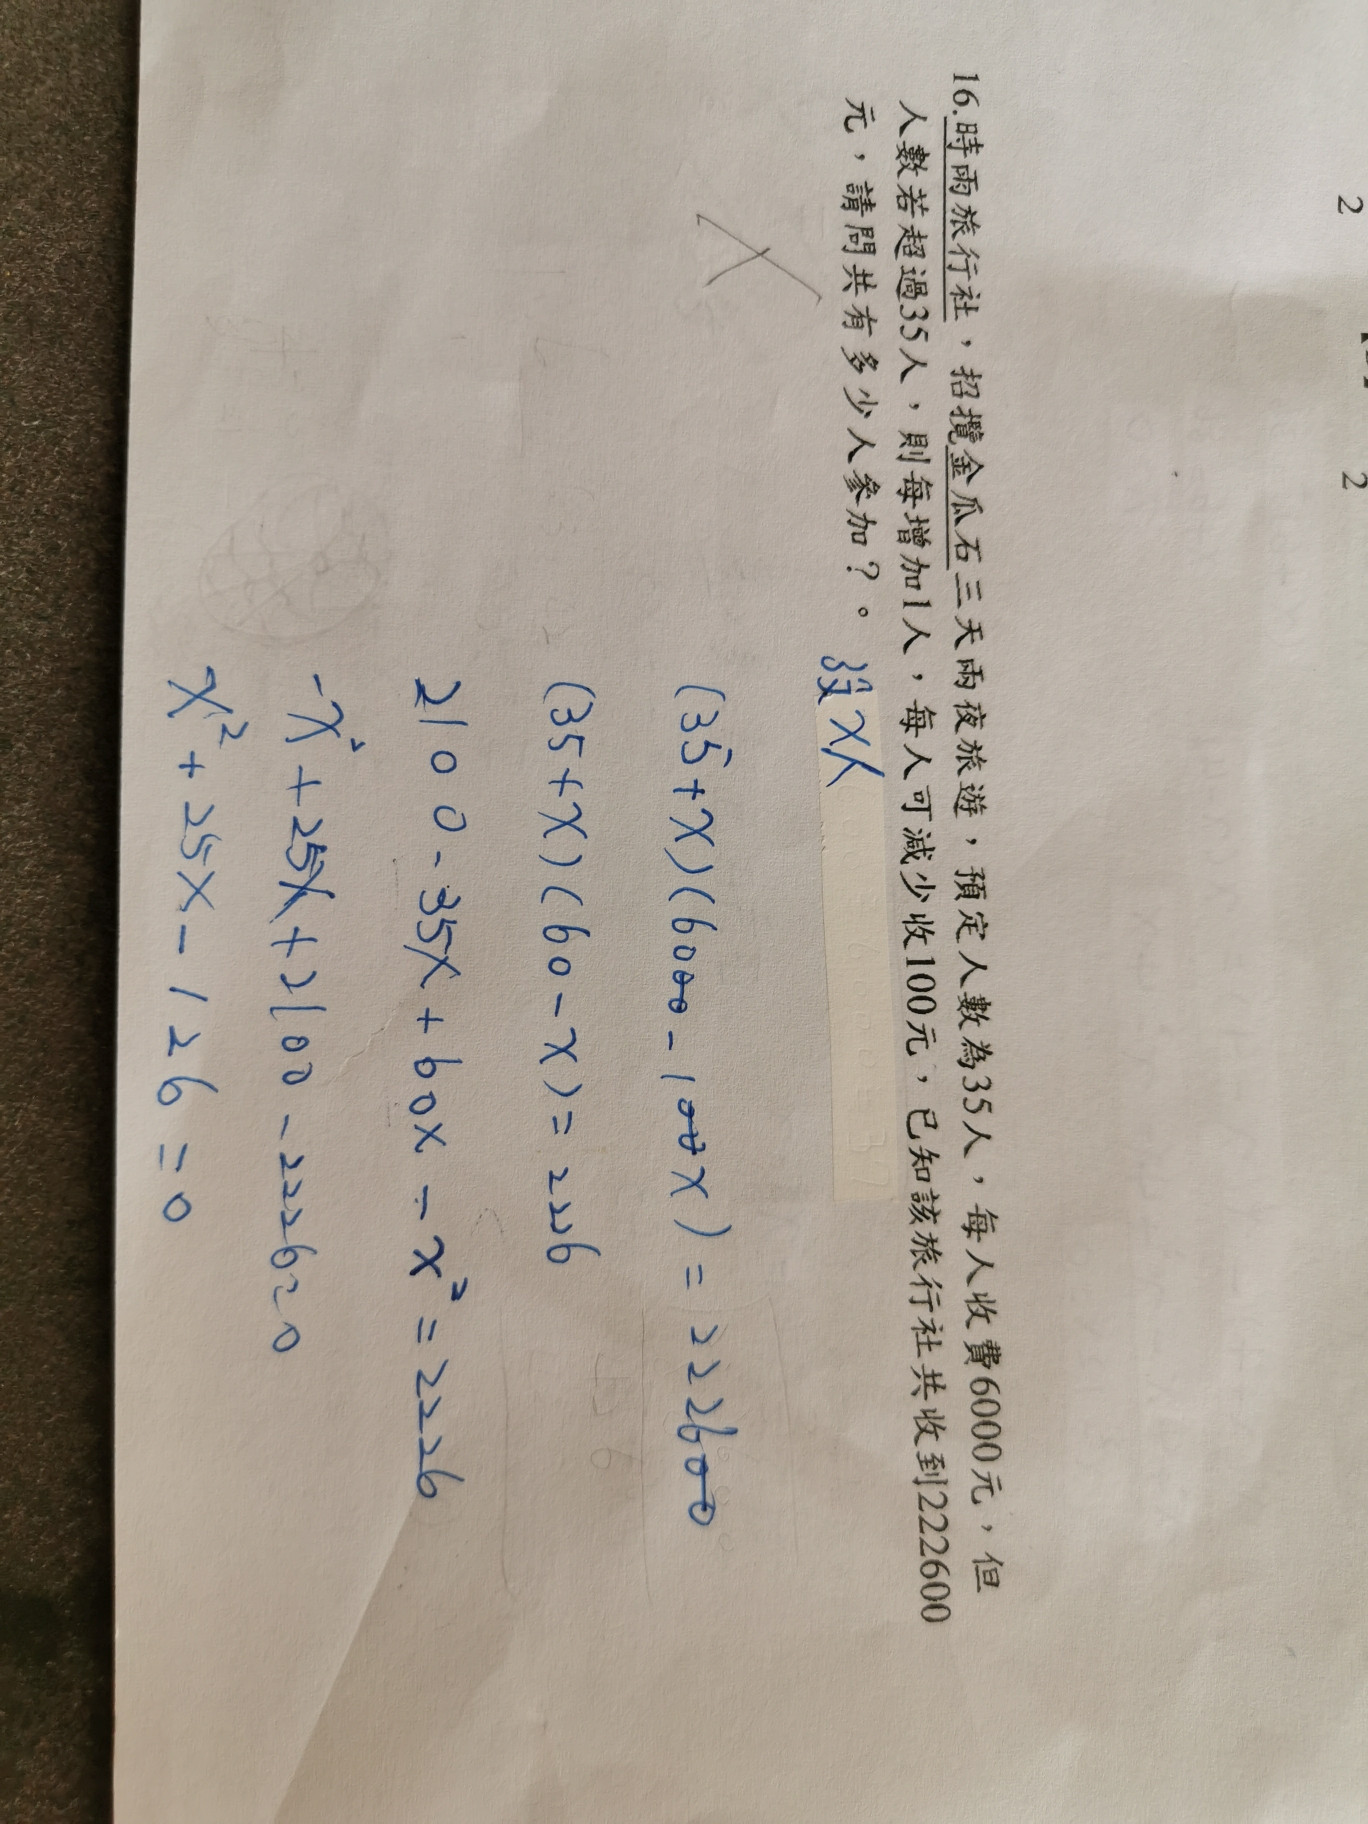 2 2
16.時雨旅行社，招攬金瓜石三天兩夜旅遊，預定人數為35人，每人收費6000元，但
人數若超過35人，則每增加1人，每人可減少收100元，已知該旅行社共收到222600
元，請問共有多少人參加？。
設x人
(35+x)(6000-100x)=222600
(35+x)(60-x)=2226
2100-35x+60x-x²=2226
-x²+25x+2100-2226=0
x²+25x-126=0